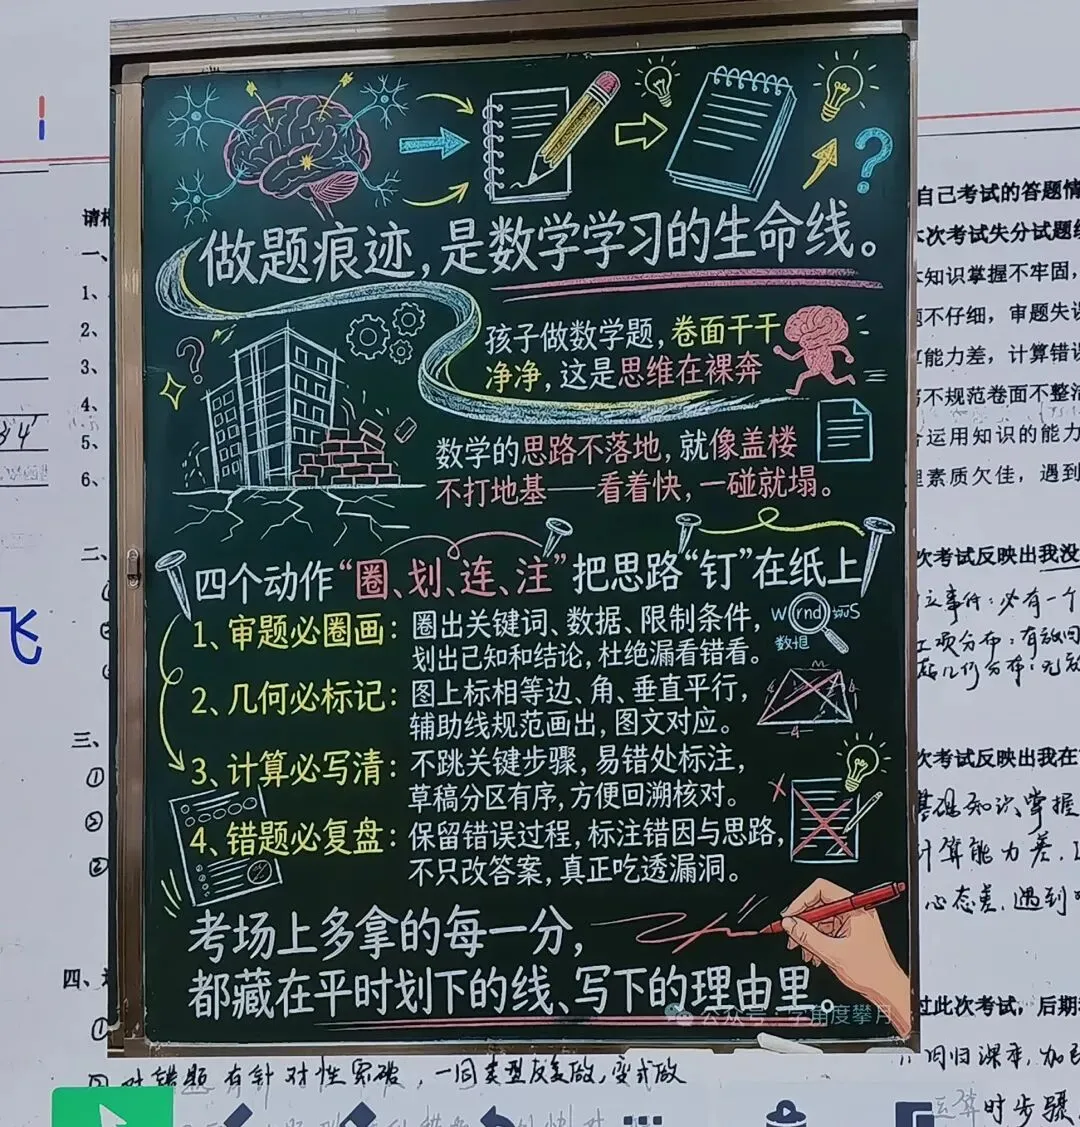 做题痕迹,是数学学习的生命线。
孩子做数学题,卷面干干
净净,这是思维在裸奔
数学的思路不落地,就像盖楼
不打地基——看着快,一碰就塌。
四个动作“圈、划、连、注”把思路“钉”在纸上
1、审题必圈画:圈出关键词、数据、限制条件,
划出已知和结论,杜绝漏看错看。
数据
2、几何必标记:图上标相等边、角、垂直平行,
辅助线规范画出,图文对应。
3、计算必写清:不跳关键步骤,易错处标注,
草稿分区有序,方便回溯核对。
4、错题必复盘:保留错误过程,标注错因与思路,
不只改答案,真正吃透漏洞。
考场上多拿的每一分,
都藏在平时划下的线、写下的理由里。
公众号·学角度攀月
飞
一、
1、
2、
3、
4、
5、
6、
二、
三、
①
②
四、
①
自己考试的答题情
次考试失分试题
知识掌握不牢固,
不仔细,审题失误
能力差,计算错误
不规范卷面不整洁
运用知识的能力
素质欠佳,遇到
次考试反映出我没
事件:必有一个
次考试反映出我在
基础知识掌握
计算能力差
心态差,遇到
过此次考试,后期
回归课本,加
对错题有针对性突破,一同类型反复做,变式做
时步骤